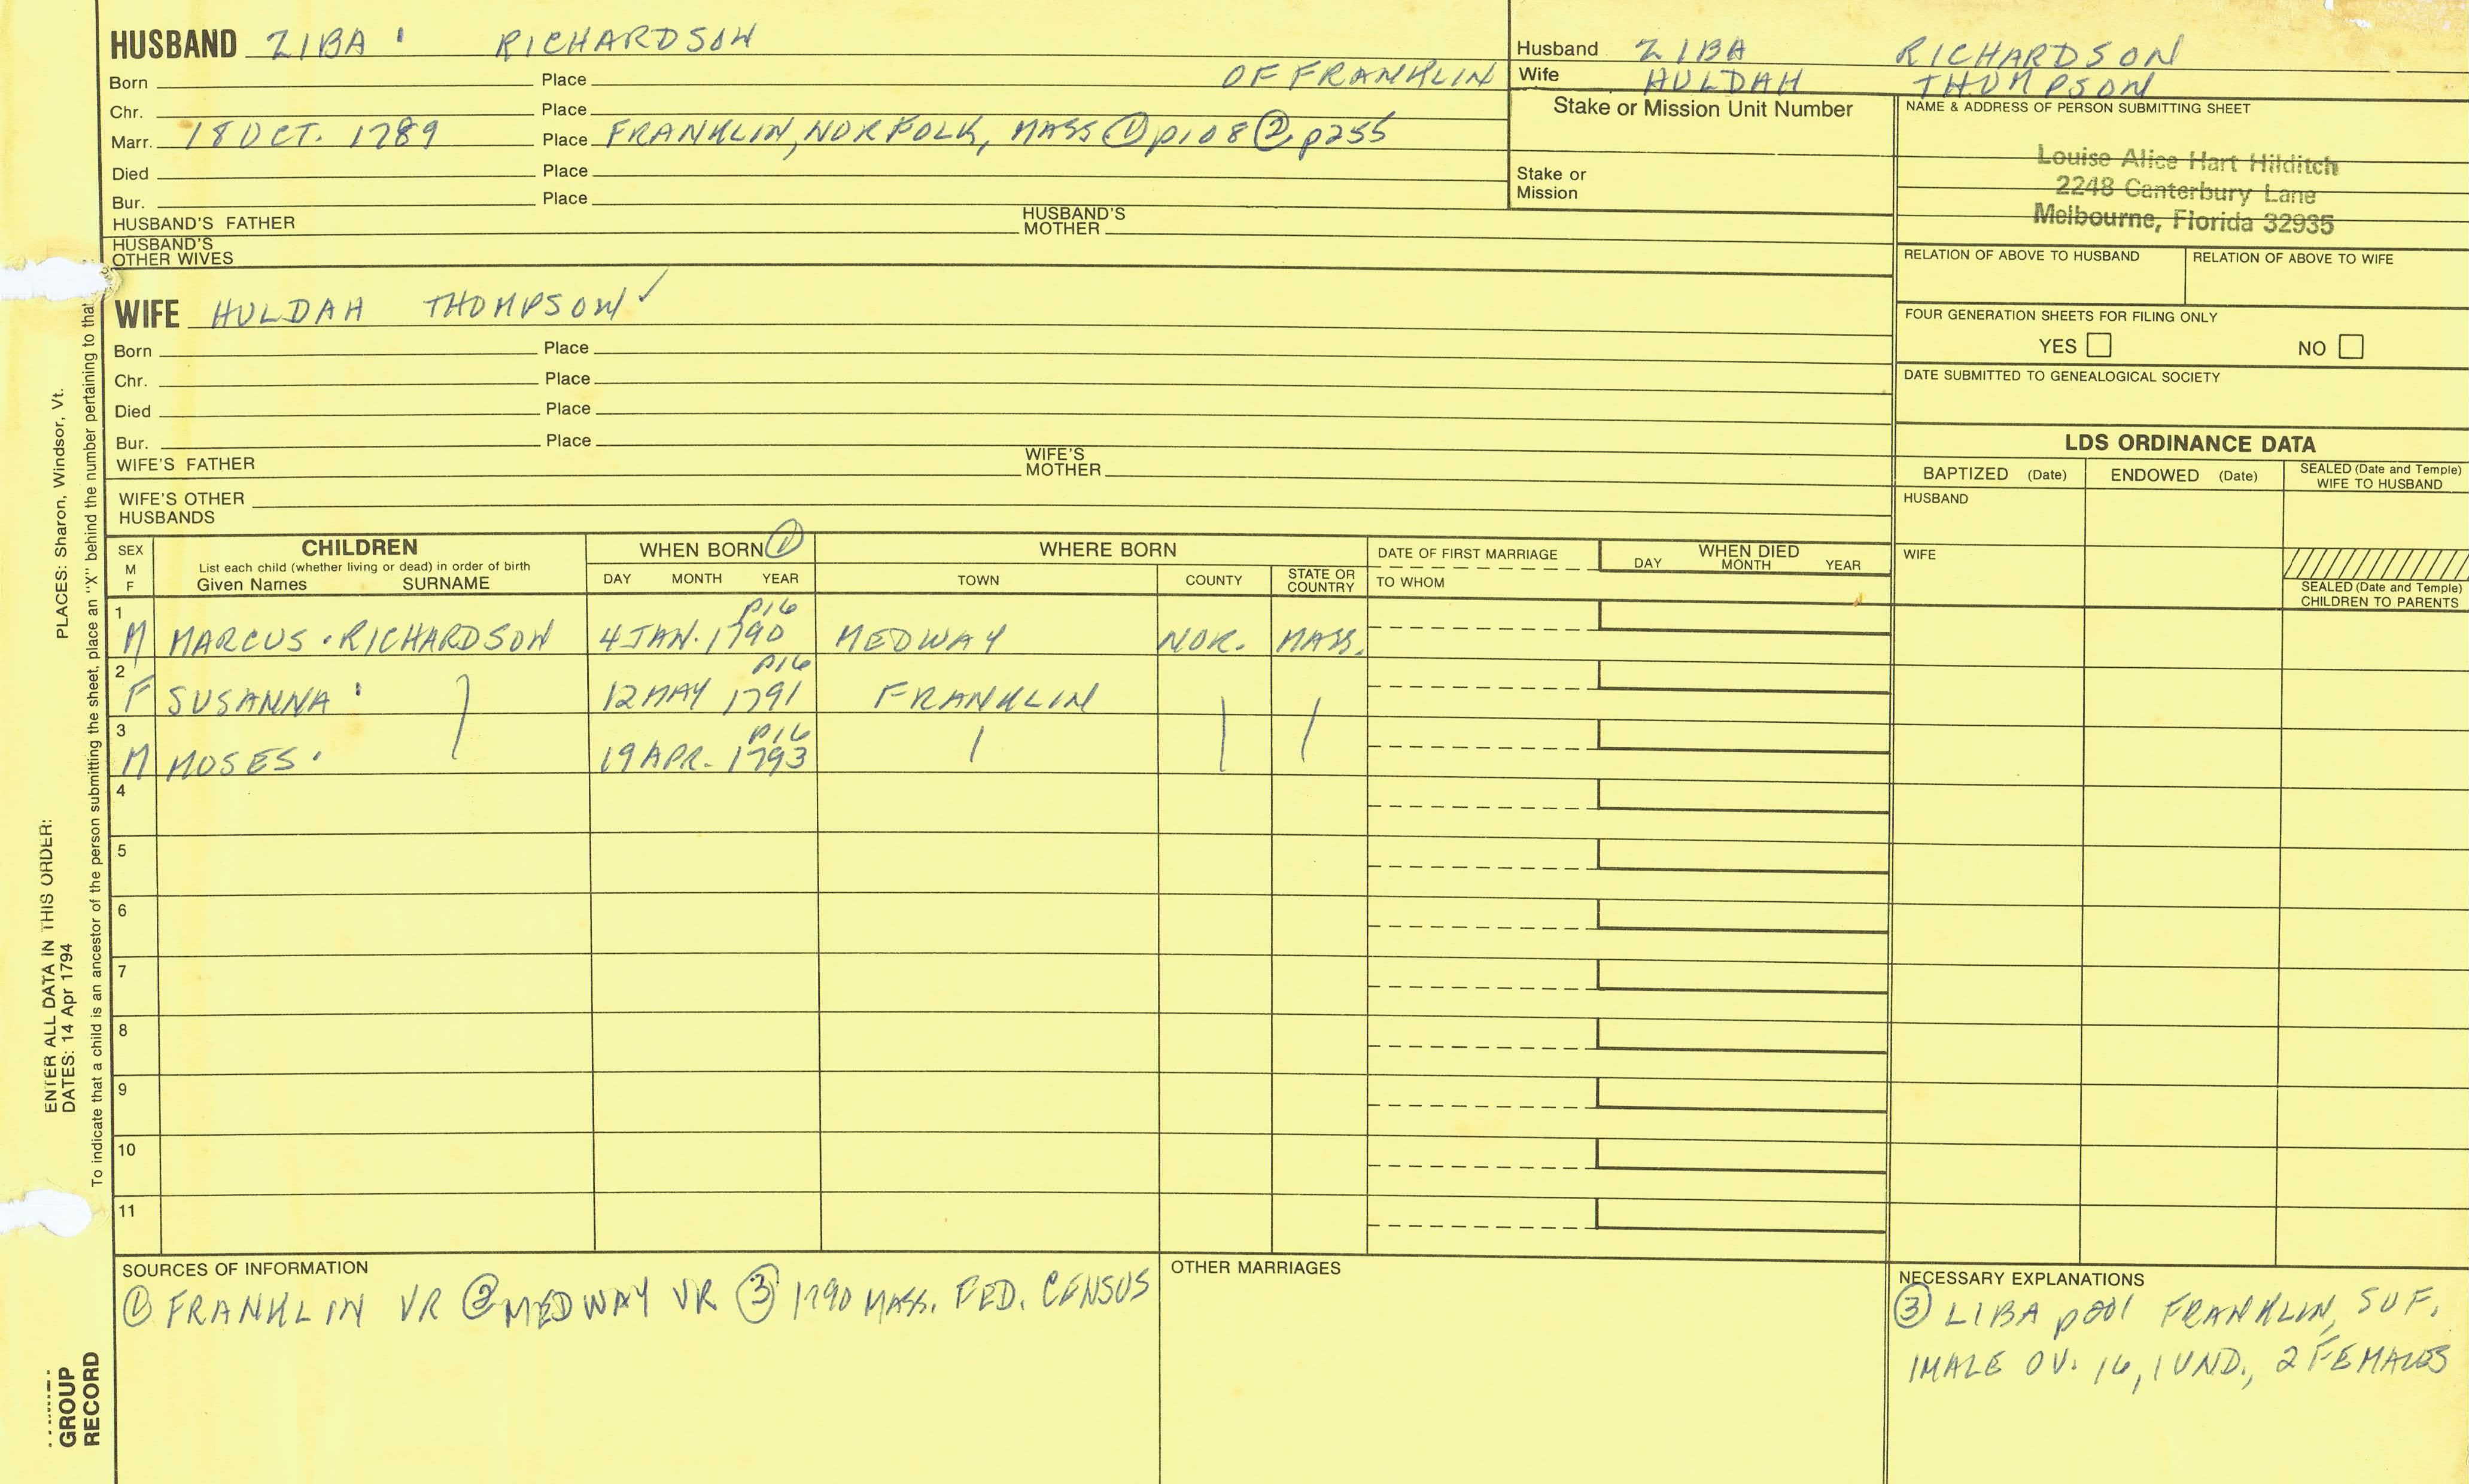 HUSBAND ZIBA ' RICHARDSON
Born Place OF FRANKLIN
Chr. Place
Marr. 18 OCT. 1789 Place FRANKLIN, NORFOLK, MASS ① p108 ② p255
Died Place
Bur. Place
HUSBAND'S FATHER HUSBAND'S MOTHER
HUSBAND'S OTHER WIVES
Husband ZIBA RICHARDSON
Wife HULDAH THOMPSON
Stake or Mission Unit Number
Stake or
Mission
NAME & ADDRESS OF PERSON SUBMITTING SHEET
Louise Alice Hart Hilditch
2248 Canterbury Lane
Melbourne, Florida 32935
RELATION OF ABOVE TO HUSBAND RELATION OF ABOVE TO WIFE
FOUR GENERATION SHEETS FOR FILING ONLY
YES NO
DATE SUBMITTED TO GENEALOGICAL SOCIETY
WIFE HULDAH THOMPSON ✓
Born Place
Chr. Place
Died Place
Bur. Place
WIFE'S FATHER WIFE'S MOTHER
WIFE'S OTHER
HUSBANDS
LDS ORDINANCE DATA
BAPTIZED (Date) ENDOWED (Date) SEALED (Date and Temple)
WIFE TO HUSBAND
HUSBAND
WIFE
SEALED (Date and Temple)
CHILDREN TO PARENTS
SEX
M
F
CHILDREN
List each child (whether living or dead) in order of birth
Given Names SURNAME
WHEN BORN ①
DAY MONTH YEAR
WHERE BORN
TOWN COUNTY STATE OR COUNTRY
DATE OF FIRST MARRIAGE
TO WHOM
WHEN DIED
DAY MONTH YEAR
1 p16
M MARCUS · RICHARDSON 4 JAN. 1790 MEDWAY NOR. MASS.
2 p16
F SUSANNA ' 12 MAY 1791 FRANKLIN
3 p16
M MOSES · 19 APR. 1793
4
5
6
7
8
9
10
11
SOURCES OF INFORMATION
① FRANKLIN VR ② MEDWAY VR ③ 1790 MASS. FED. CENSUS
OTHER MARRIAGES
NECESSARY EXPLANATIONS
③ LIBA p201 FRANKLIN, SUF.
1 MALE OV. 16, 1 UND., 2 FEMALES
PLACES: Sharon, Windsor, Vt.
ENTER ALL DATA IN THIS ORDER:
DATES: 14 Apr 1794
To indicate that a child is an ancestor of the person submitting the sheet, place an "X" behind the number pertaining to that
GROUP
RECORD